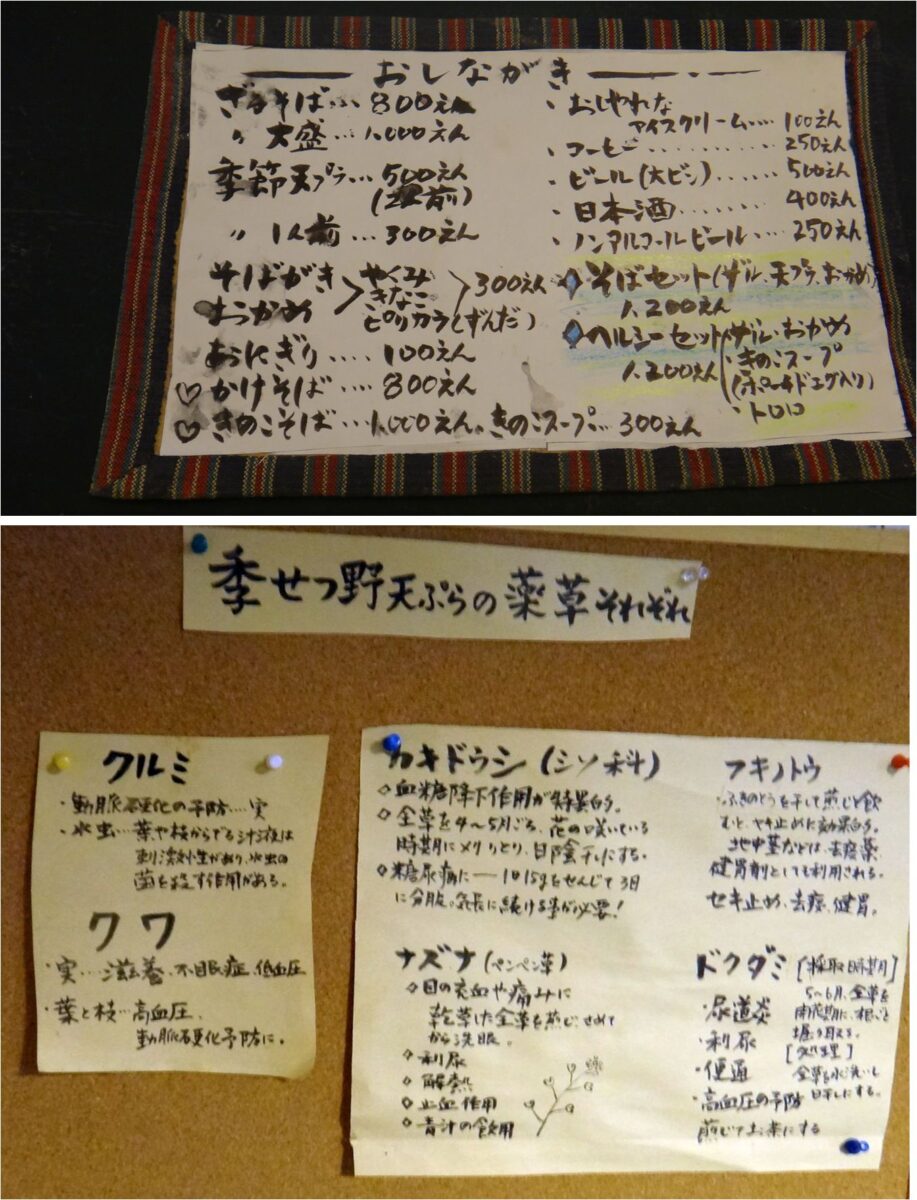 おしながき
ざるそば… 800えん
〃 大盛… 1,000えん
季節天プラ… 500えん
(2人前)
〃 1人前… 300えん
そばがき
おつかめ
やくみ
きなこ
ピリカラ(ずんだ)
300えん
おにぎり…. 100えん
♡かけそば…. 800えん
♡きのこそば… 1,000えん、きのこスープ… 300えん
、おしゃれな
アイスクリーム…. 100えん
、コーヒー……… 250えん
、ビール(大ビン)…… 500えん
、日本酒…….. 400えん
、ノンアルコールビール…. 250えん
そばセット(ザル、天プラ、おかめ)
1,200えん
ヘルシーセット(ザル・おかめ
1,200えん
、きのこスープ
(ポーチドエッグ入り)
、トロロ
季せつ野天ぷらの薬草それぞれ
クルミ
・動脈硬化の予防…実
・水虫…葉や枝からでる汁液は
刺激性があり、水虫の
菌を殺す作用がある。
クワ
・実…滋養、不眠症、低血圧
・葉と枝…高血圧、
動脈硬化予防に。
カキドウシ(シソ科)
◇血糖降下作用が特異的。
◇全草を4〜5月ごろ、花の咲いている
時期にメリとり、日陰干しにする。
◇糖尿病に──1日15gをせんじて3回
に分服。気長に続ける事が必要!
フキノトウ
・ふきのとうを干して煎じて飲
むと、セキ止めに効果的。
地中茎などは、去痰薬
健胃剤としても利用される。
セキ止め、去痰、健胃。
ナズナ(ペンペン草)
◇目の充血や痛みに
乾草した全草を煎じ、さめて
から洗眼。
◇利尿
◇解熱
◇止血作用
◇青汁の飲用
ドクダミ
・尿道炎
・利尿
・便通
・高血圧の予防
煎じてお茶にする
[採取時期]
5〜6月、全草を
開花期に、根ごと
掘り取る。
[処理]
全草を水洗いし
日干しにする。